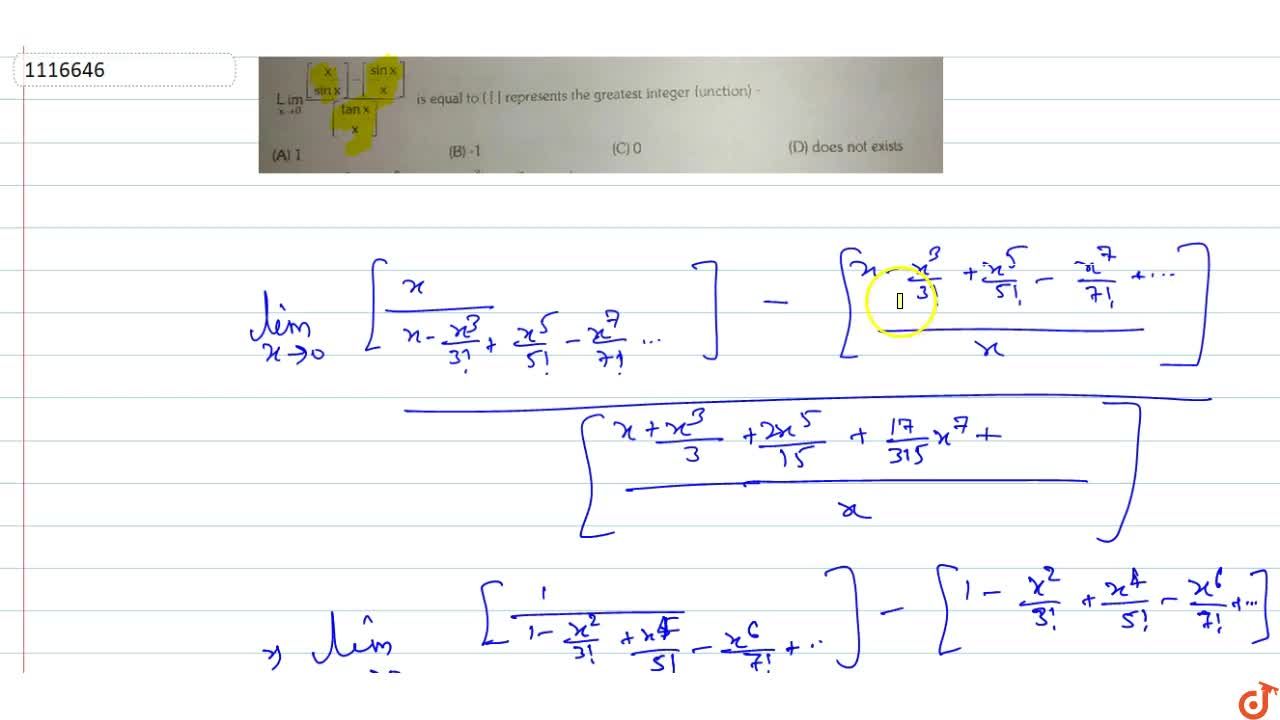 1116646
Lim x→0 ([x/sin x] − [sin x/x]) / [tan x/x] is equal to ( [ ] represents the greatest integer function) -
(A) 1 (B) -1 (C) 0 (D) does not exists
lim x→0 [x / (x − x³/3! + x⁵/5! − x⁷/7! ...)] − [(x − x³/3! + x⁵/5! − x⁷/7! + ...) / x]
[(x + x³/3 + 2x⁵/15 + 17/315 x⁷ +) / x]
⇒ lim [1 / (1 − x²/3! + x⁴/5! − x⁶/7! + ..)] − [1 − x²/3! + x⁴/5! − x⁶/7! + ...]